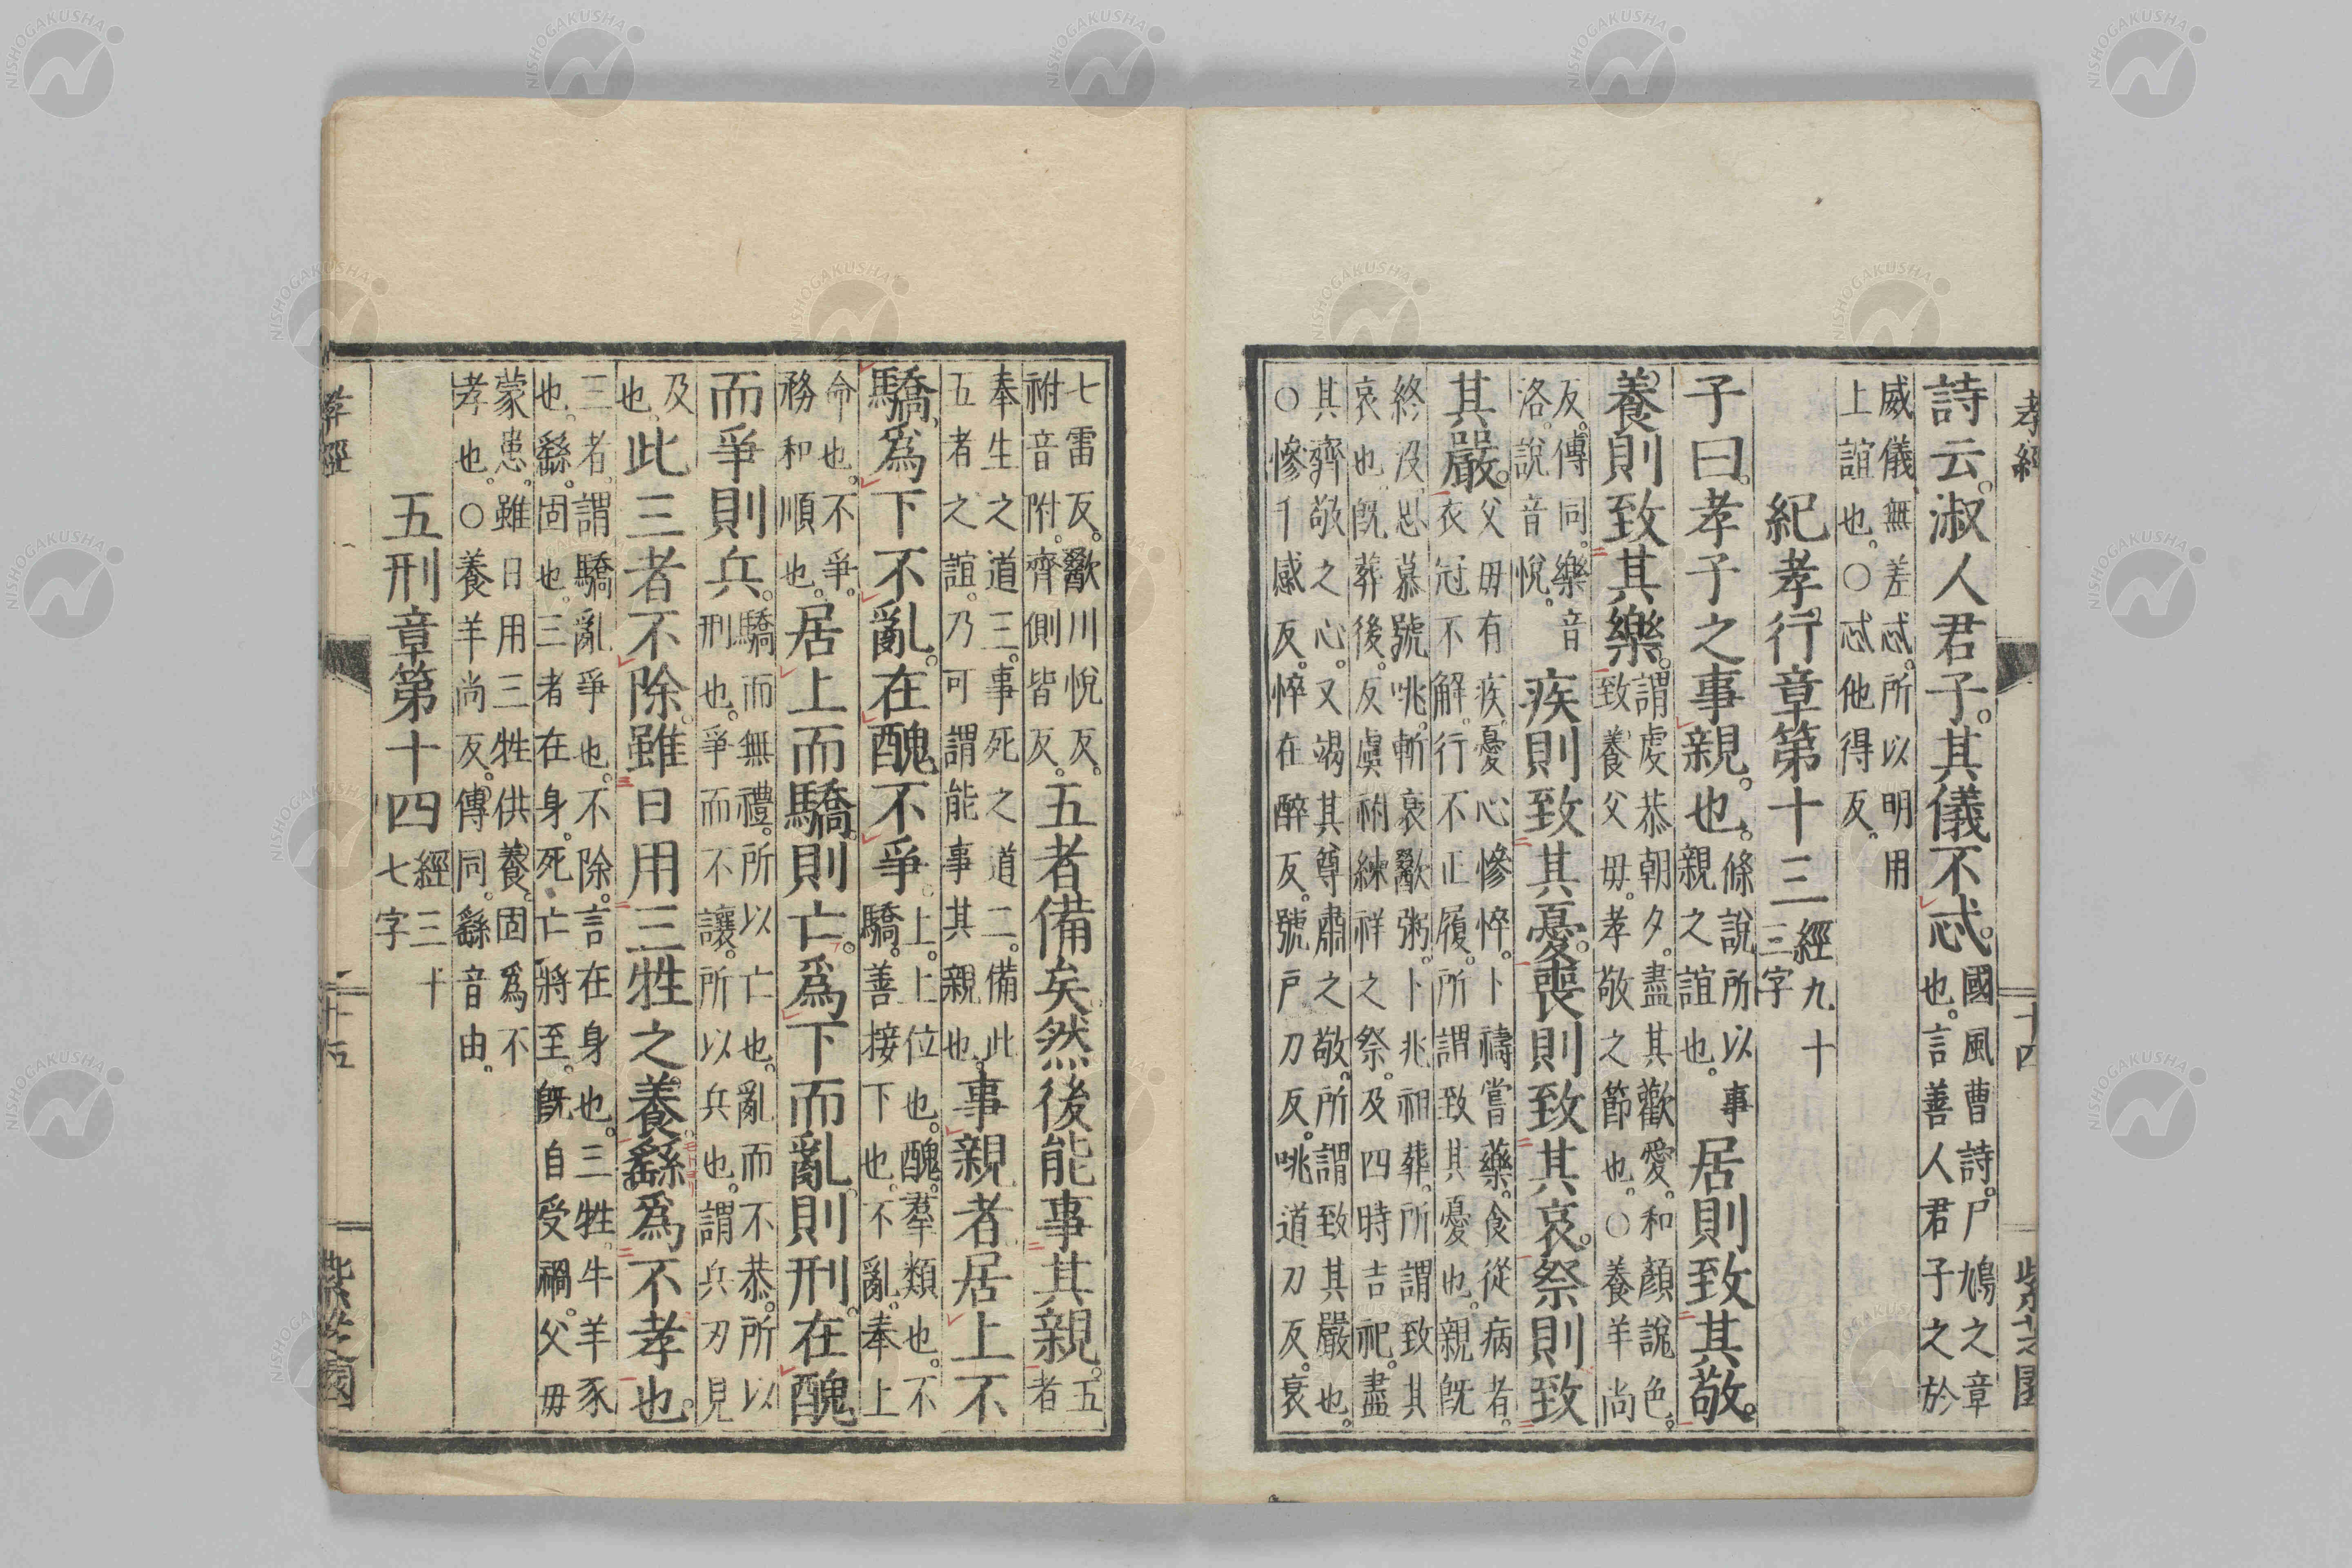 詩云。淑人君子。其儀不忒。國風曹詩。尸鳩之章
也。言善人君子之於
威儀無差忒。所以明用
上誼也。○忒他得反。
紀孝行章第十三經九十
三字
子曰。孝子之事親也。條說所以事
親之誼也。居則致其敬。
養則致其樂。謂虔恭朝夕。盡其歡愛。和顏說色。
致養父毋。孝敬之節也。○養羊尚
反。傳同。樂音
洛。說音悅。疾則致其憂。喪則致其哀。祭則致
其嚴。父毋有疾。憂心慘悴。卜禱嘗藥。食從病者。
衣冠不解。行不正履。所謂致其憂也。親旣
終沒。思慕號咷。斬衰歠粥。卜兆祖葬。所謂致其
哀也。旣葬後。反虞祔練祥之祭。及四時吉祀。盡
其齊敬之心。又竭其尊肅之敬。所謂致其嚴也。
○慘千感反。悴在醉反。號戶刀反。咷道刀反。衰
七雷反。歠川悅反。
祔音附。齊側皆反。五者備矣。然後能事其親。五
者
奉生之道三。事死之道二。備此
五者之誼。乃可謂能事其親也。事親者。居上不
驕。爲下不亂。在醜不爭。上。上位也。醜。羣類也。不
驕。善接下也。不亂。奉上
命也。不爭。
務和順也。居上而驕。則亡。爲下而亂。則刑。在醜
而爭則兵。驕而無禮。所以亡也。亂而不恭。所以
刑也。爭而不讓。所以兵也。謂兵刃見
及
也。此三者不除。雖日用三牲之養。繇爲不孝也。
三者。謂驕亂爭也。不除。言在身也。三牲。牛羊豕
也。繇。固也。三者在身。死亡將至。旣自受禍。父毋
蒙患。雖日用三牲供養。固爲不
孝也。○養羊尚反。傳同。繇音由。
五刑章第十四經三十
七字
孝經
十四
紫芝園
孝經
十五
紫芝園